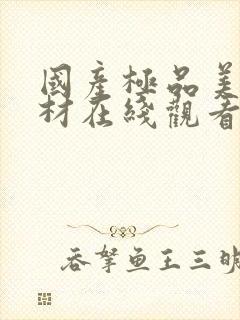 國產極品美
材在綫觀看
吞拏鱼王三昧